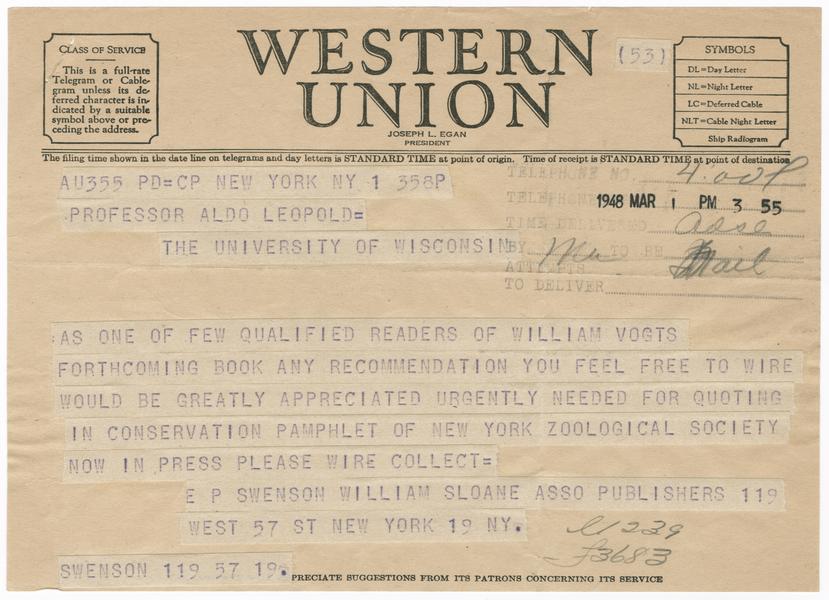 CLASS OF SERVICE
This is a full-rate
Telegram or Cable-
gram unless its de-
ferred character is in-
dicated by a suitable
symbol above or pre-
ceding the address.
WESTERN
UNION
(53)
JOSEPH L. EGAN
PRESIDENT
SYMBOLS
DL=Day Letter
NL=Night Letter
LC=Deferred Cable
NLT=Cable Night Letter
Ship Radiogram
The filing time shown in the date line on telegrams and day letters is STANDARD TIME at point of origin. Time of receipt is STANDARD TIME at point of destination
AU355 PD=CP NEW YORK NY 1 358P
TELEPHONE NO.
PROFESSOR ALDO LEOPOLD=
TELEPHONE
1948 MAR 1 PM 3 55
THE UNIVERSITY OF WISCONSIN
TIME DELIVERED
BY TO BE Mail
ATTEMPTS
TO DELIVER
AS ONE OF FEW QUALIFIED READERS OF WILLIAM VOGTS
FORTHCOMING BOOK ANY RECOMMENDATION YOU FEEL FREE TO WIRE
WOULD BE GREATLY APPRECIATED URGENTLY NEEDED FOR QUOTING
IN CONSERVATION PAMPHLET OF NEW YORK ZOOLOGICAL SOCIETY
NOW IN PRESS PLEASE WIRE COLLECT=
E P SWENSON WILLIAM SLOANE ASSO PUBLISHERS 119
WEST 57 ST NEW YORK 19 NY.
SWENSON 119 57 19.
PRECIATE SUGGESTIONS FROM ITS PATRONS CONCERNING ITS SERVICE